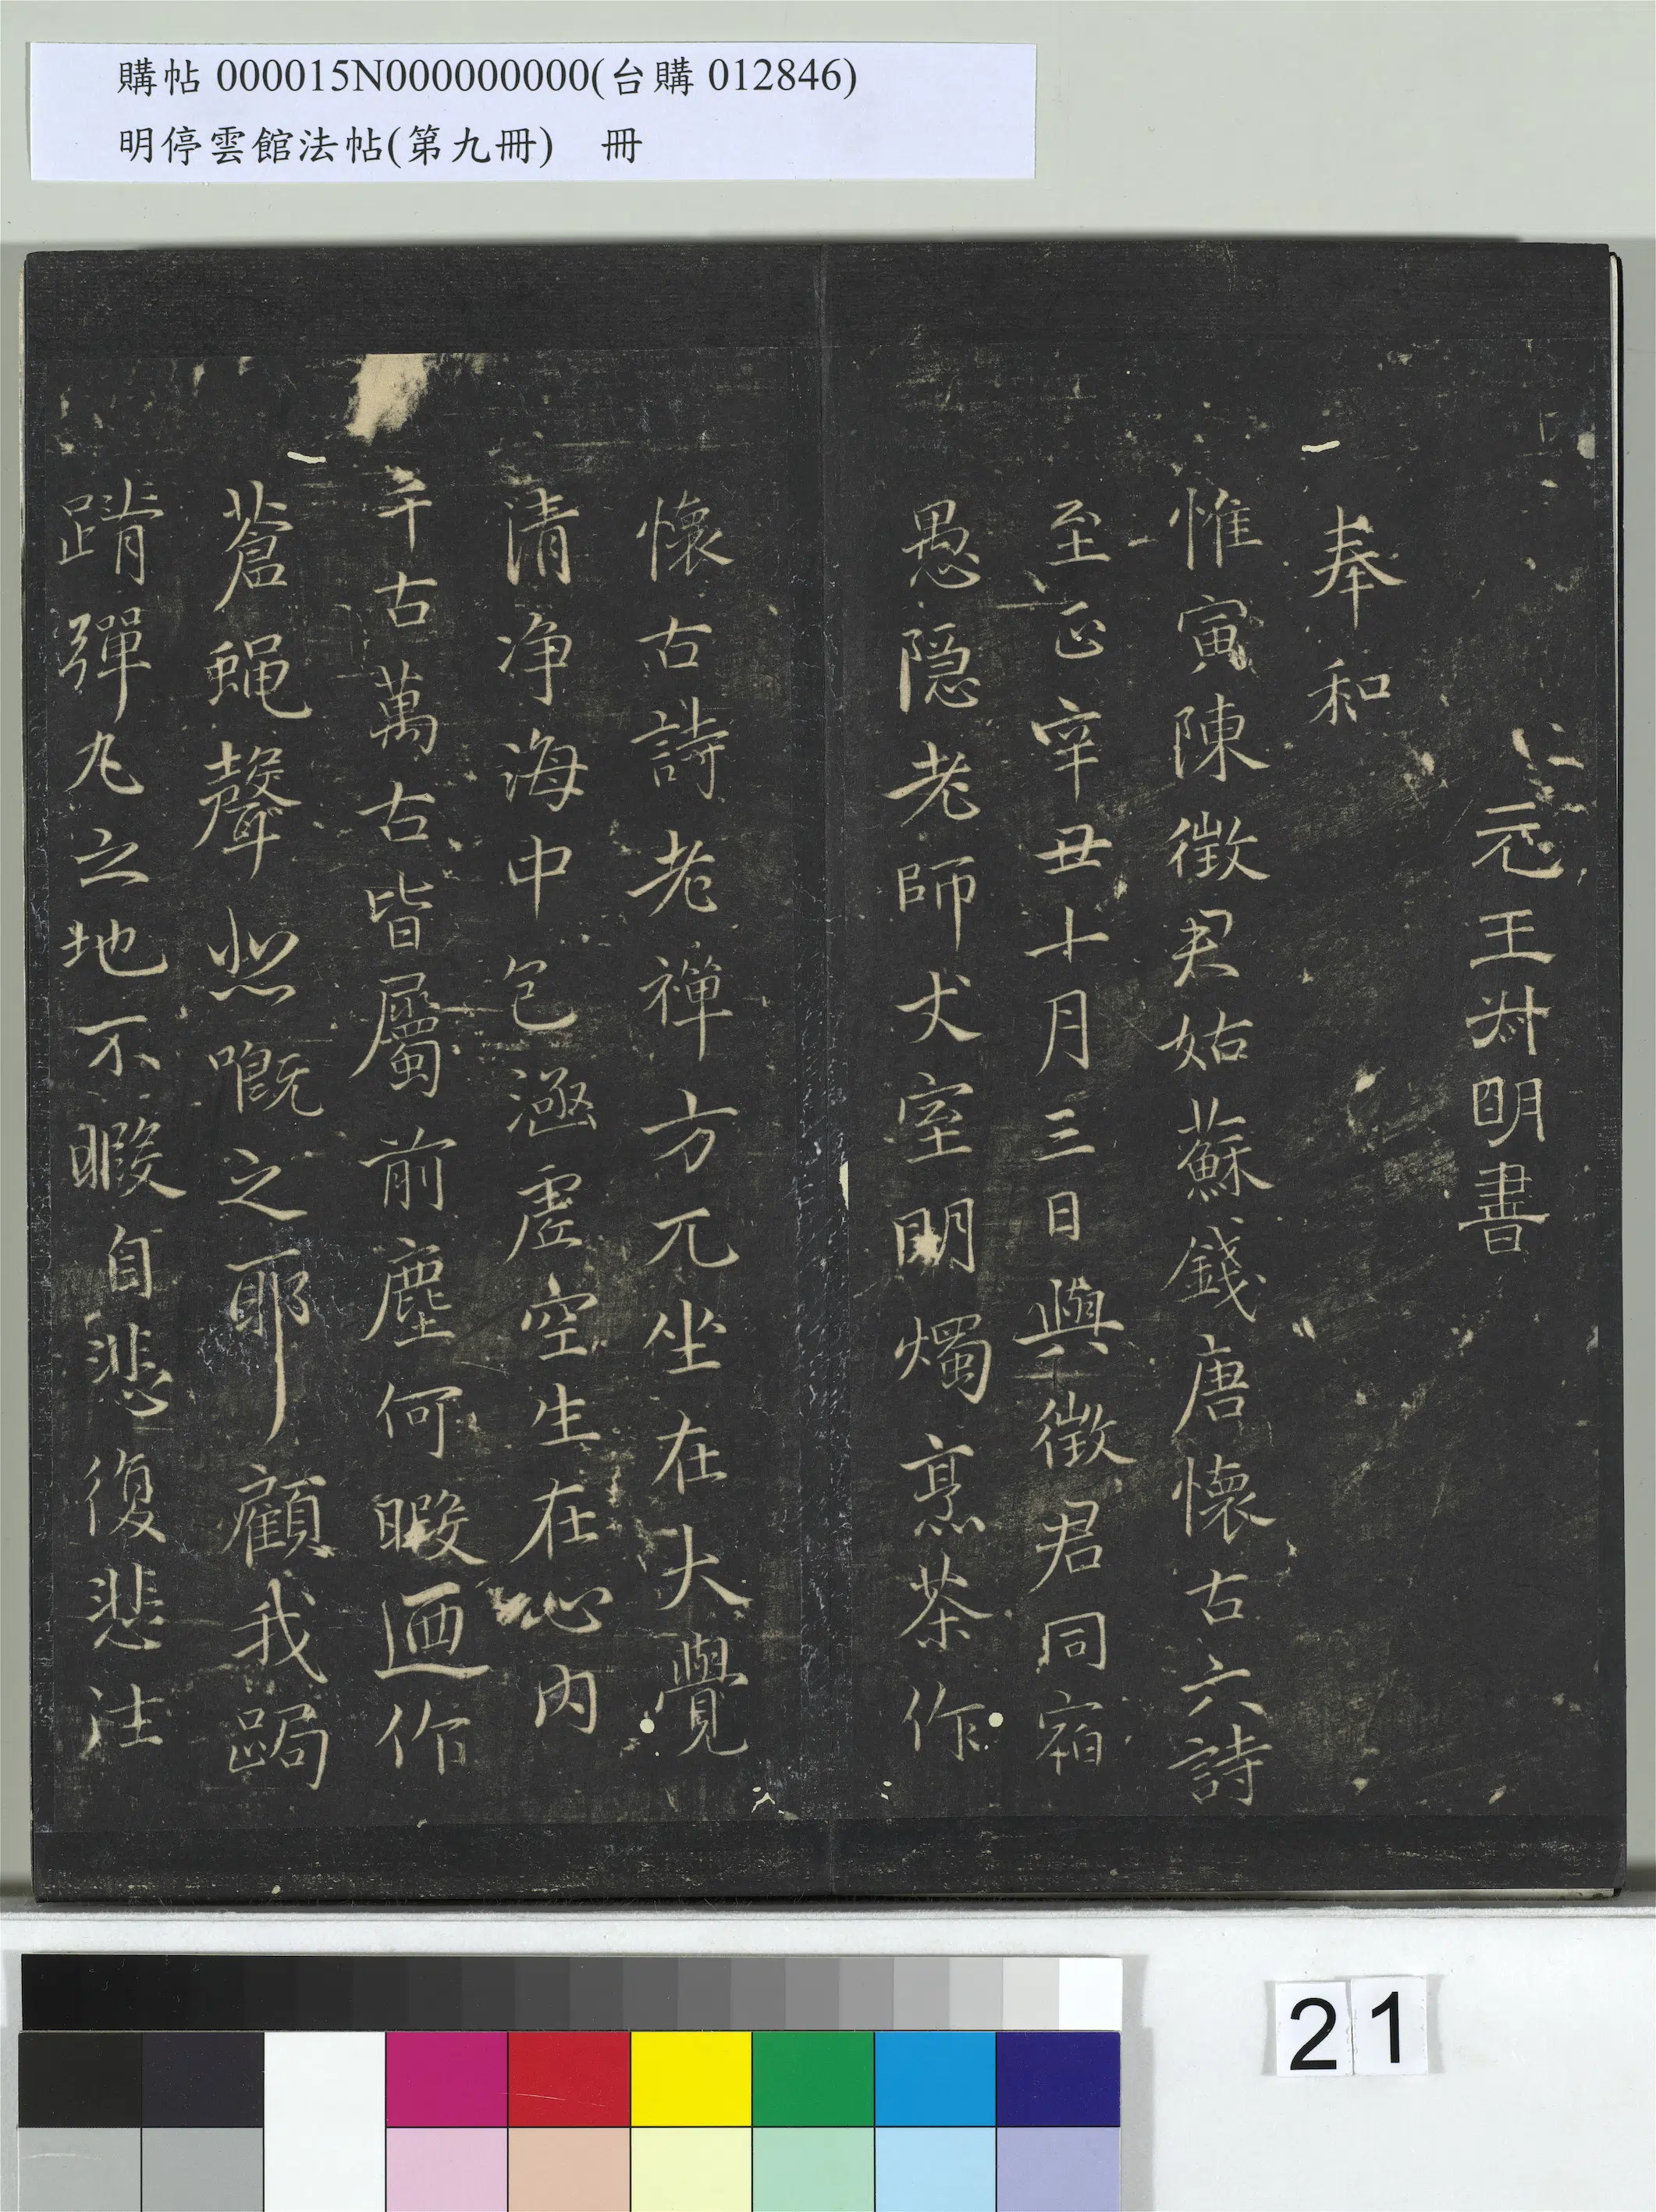 購帖 000015N000000000(台購 012846)
明停雲館法帖(第九冊)　冊
元王叔明書
奉和
惟寅陳徵君姑蘇錢唐懷古六詩
至正辛丑十月三日與徵君同宿
愚隱老師丈室明燭烹茶作
懷古詩老禪方兀坐在大覺
清净海中包涵虛空生在心内
千古萬古皆屬前塵何暇迺作
蒼蝇聲㸃嘅之耶顧我跼
蹐彈丸之地不暇自悲復悲注
21